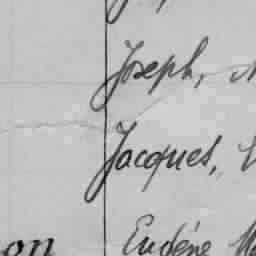 Joseph,
Jacques,
on Eugène